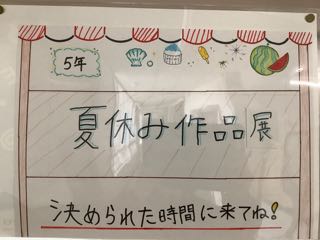 5年
夏休み作品展
決められた時間に来てね!